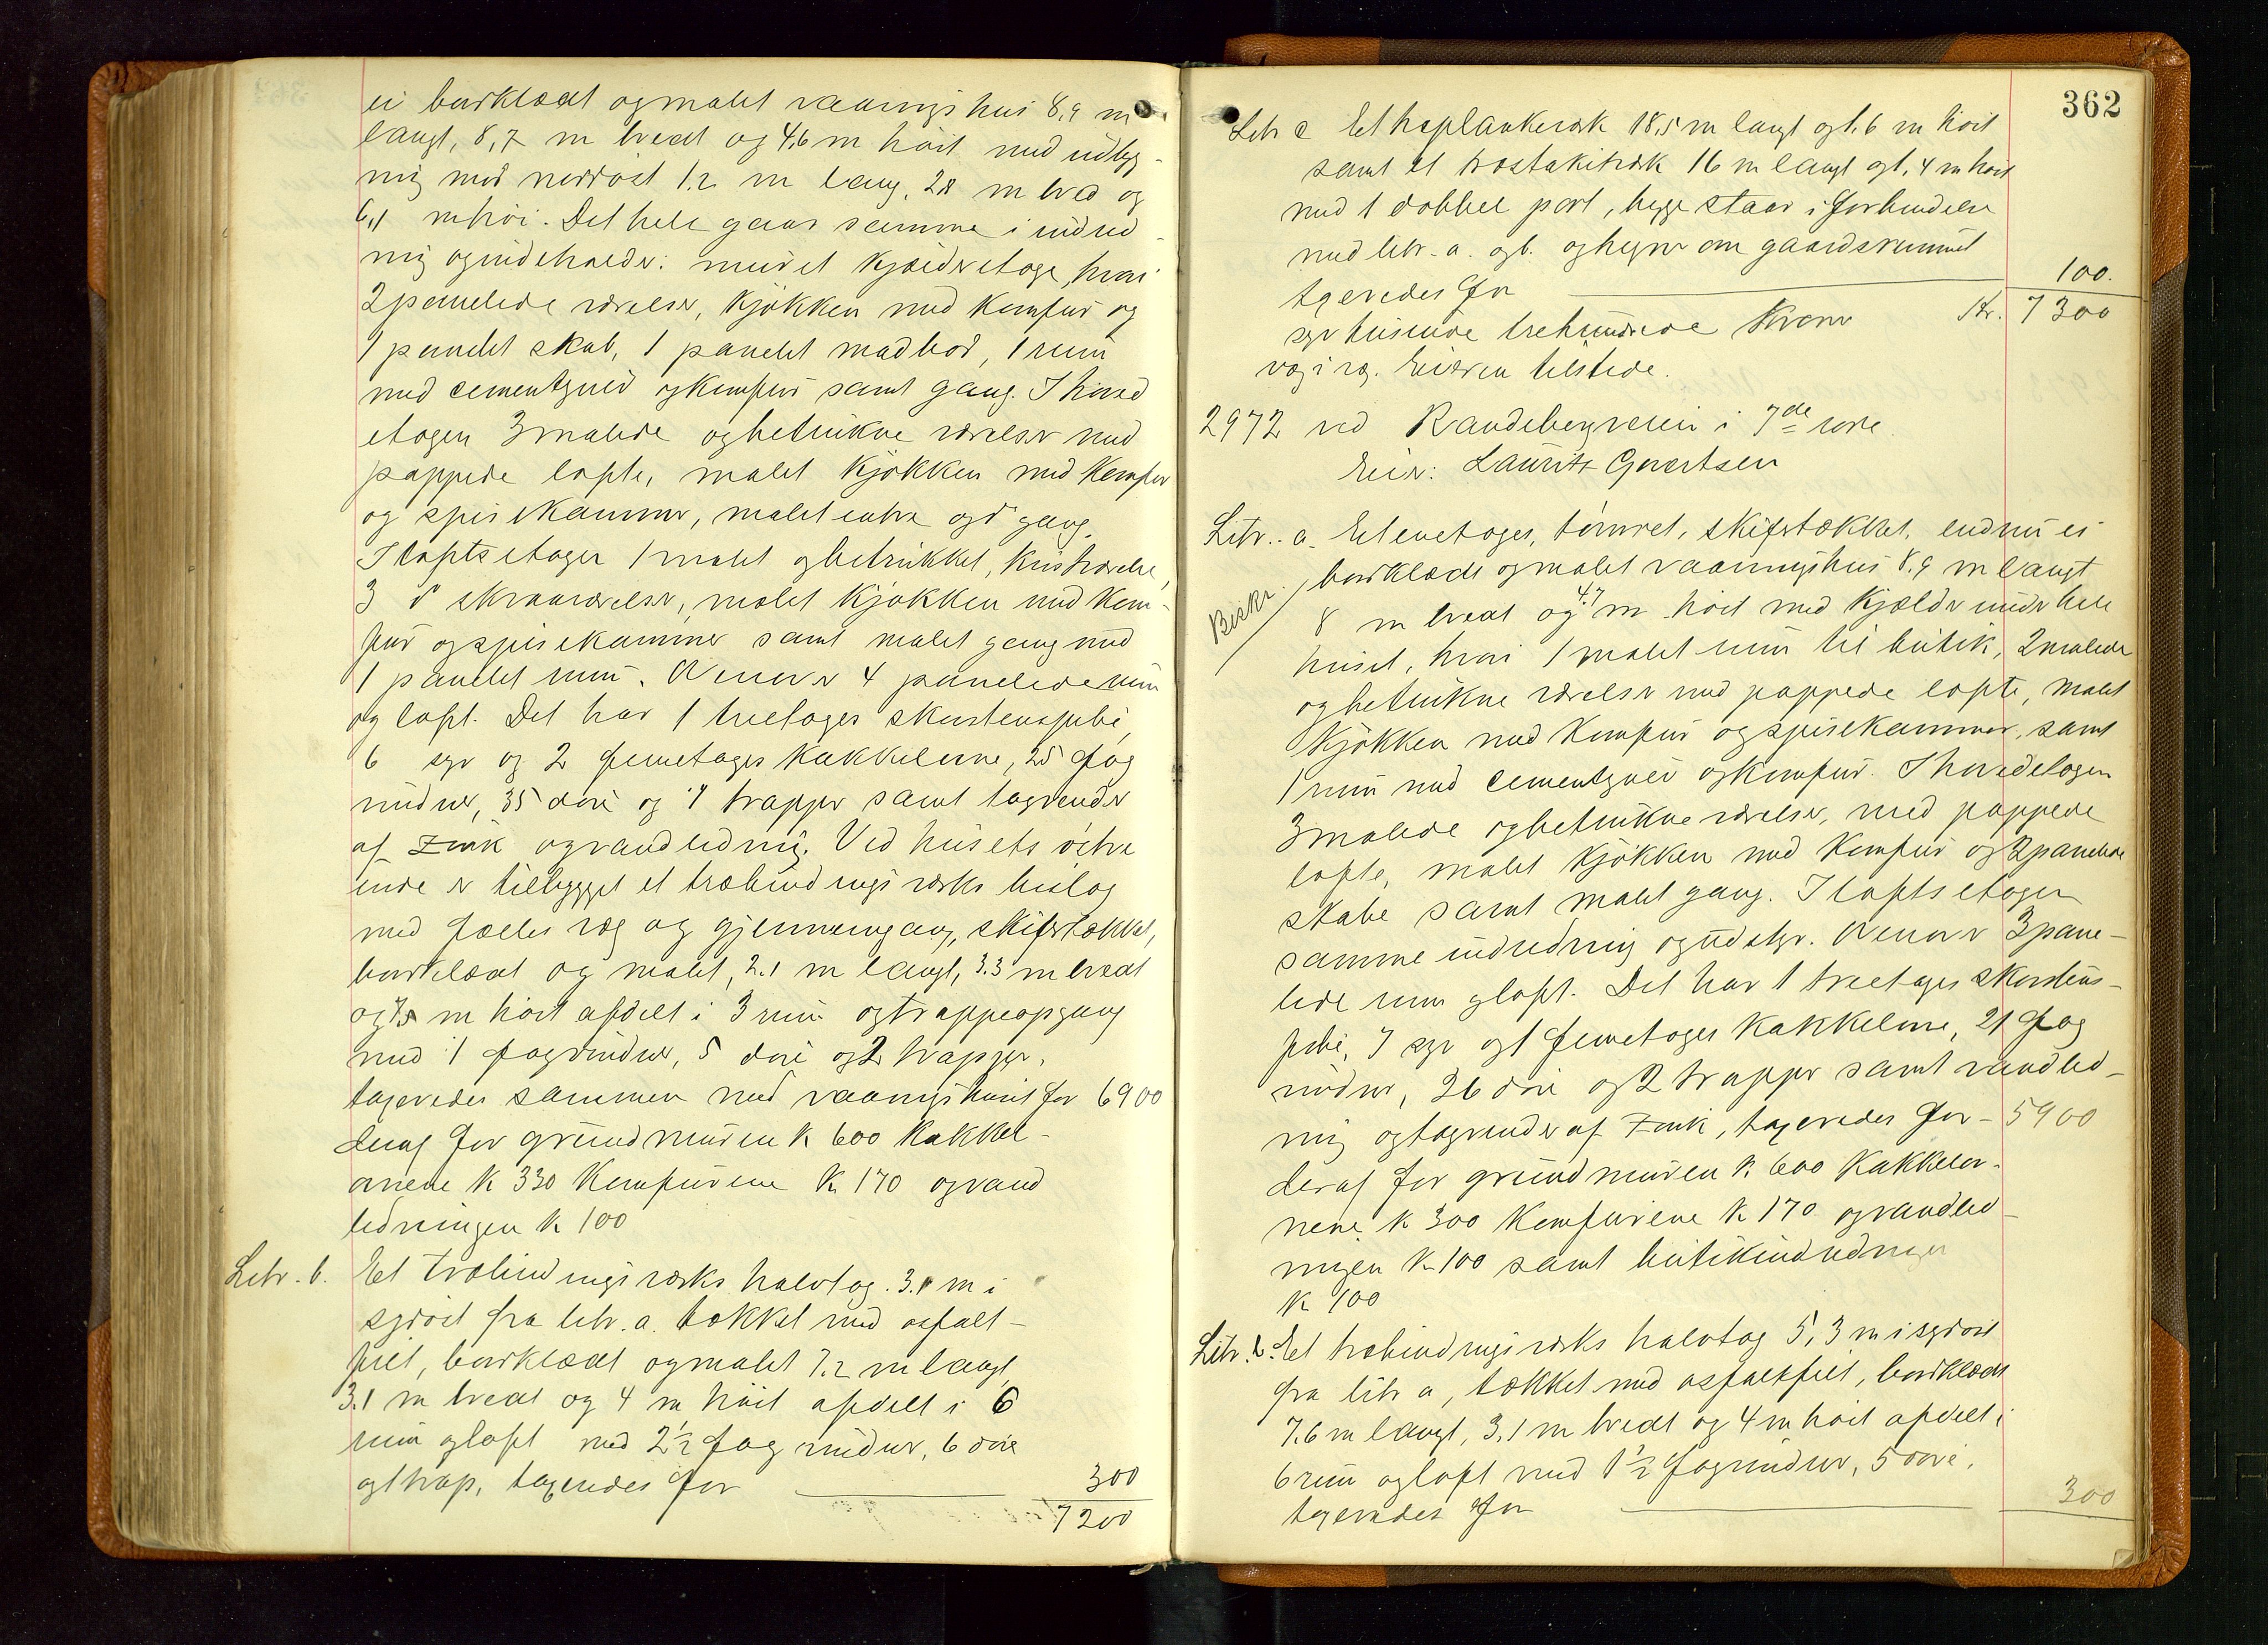 ei bordklædt og malet vaaningshus 8,9 m
langt, 8,7 m bredt og 4,6 m höit med udbyg-
ning mod nordöst 1.2 m lang, 2.8 m bred og
6,1 m höi. Det hele gaar sammen i indred-
ning og indeholder: muret kjælderetage, hvori
2 panelede værelser, kjökken med komfur og
1 panelet skab, 1 panelet madbod, 1 rum
med cementgulv og komfur samt gang. I hoved
etagen 3 malede og betrukne værelser med
pappede lofte, malet kjökken med komfur
og spisekammer, malet entre og do gang.
I loftsetagen 1 malet og betrukket, kvistværelse,
3 do skraaværelser, malet kjökken med kom-
fur og spisekammer samt malet gang med
1 panelet rum. Ovenover 4 panelede rum
og loft. Det har 1 treetages skorstenspibe,
6 syv og 2 femetages kakkelovne, 25 fag
vinduer, 35 döre og 4 trapper samt tagrender
af zink og vandledning. Ved husets östre
ende er tilbygget et træbindingsværks hustag
med fælles væg og gjennemgang, skifertækket,
bordklædt og malet, 2.1 m langt, 3.3 m bredt
og 7,5 m höit afdelt i 3 rum og trappeopgang
med 1 fag vinduer, 5 döre og 2 trapper.
taxeredes sammen med vaaningshuset for 6900
deraf for grundmuren k 600 kakkel-
ovnene k 330 komfurene k 170 og vand
ledningen k 100
Litr. b. Et træbindingsværks halvtag 3.1 m i
sydöst fra litr. a. tækket med asfalt-
filt, bordklædt og malet 7.2 m langt,
3.1 m bredt og 4 m höit afdelt i 6
rum og loft med 2½ fag vinduer, 6 döre
og 1 trap, taxeredes for 300
7200
362
Litr c Et træplankeværk 18,5 m langt og 1,6 m höit
samt et træstakitværk 16 m langt og 1,4 m höit
med 1 dobbel port, begge staar i forbindelse
med litr. a. og b. og hegner om gaardsrummet
taxeredes for 100.
syv tusinde trehundrede Kroner kr. 7300
væg i væg. Eieren tilstede.
2972 ved Randebergveien i 7de rode.
Eier: Lauritz Govertsen
Litr. a. Et enetages, tömret, skifertækket, endnu ei
bordklædt og malet vaaningshus 8.9 m langt
8 m bredt og 4.7 m höit med kjælder under hele
Beskr.
huset, hvori 1 malet rum til butik, 2 malede
og betrukne værelser med pappede lofte, malet
kjökken med komfur og spisekammer, samt
1 rum med cementgulv og komfur. I hovedetagen
3 malede og betrukne værelser, med pappede
lofte, malet kjökken med komfur og 2 panelede
skabe samt malet gang. I loftsetagen
samme indredning og udstyr. Ovenover 3 pane-
lede rum og loft. Det har 1 treetages skorstens-
pibe, 7 syv og 1 femetages kakkelovne, 21 fag
vinduer, 26 döre og 2 trapper samt vandled-
ning og tagrender af zink, taxeredes for - 5900
deraf for grundmuren k. 600 kakkelov-
nene k 300 komfurene k 170 og vandled-
ningen k 100 samt butikindredningen
k 100
Litr. b. Et træbindingsværks halvtag 5,3 m i sydöst
fra litr a, tækket med asfaltfilt, bordklædt
7.6 m langt, 3,1 m bredt og 4 m höit afdelt i
6 rum og loft med 1½ fag vinduer, 5 döre,
taxeredes for 300